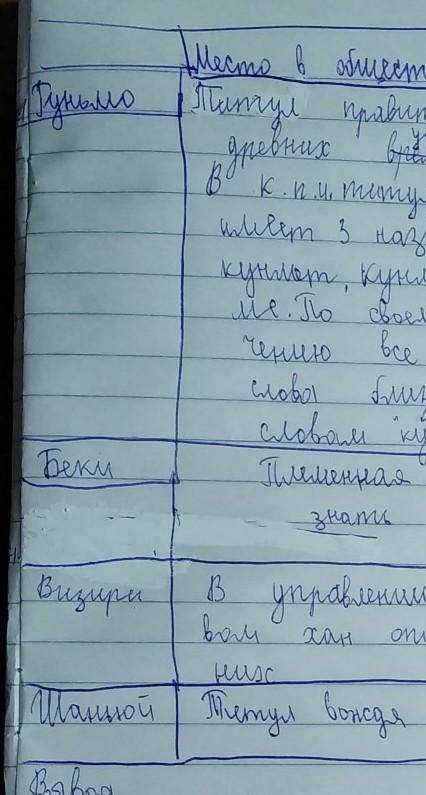 Место в общест
Гуньмо Титул правит
древних
В к.п.и. титул
имеет 3 наз
кунмот, кунм
ме. По своем
чению все
слова близ
словам "ку
Беки Племенная
знать
Визири В управлении
вом хан оп
них
Шаньюй Титул вождя
Вывод